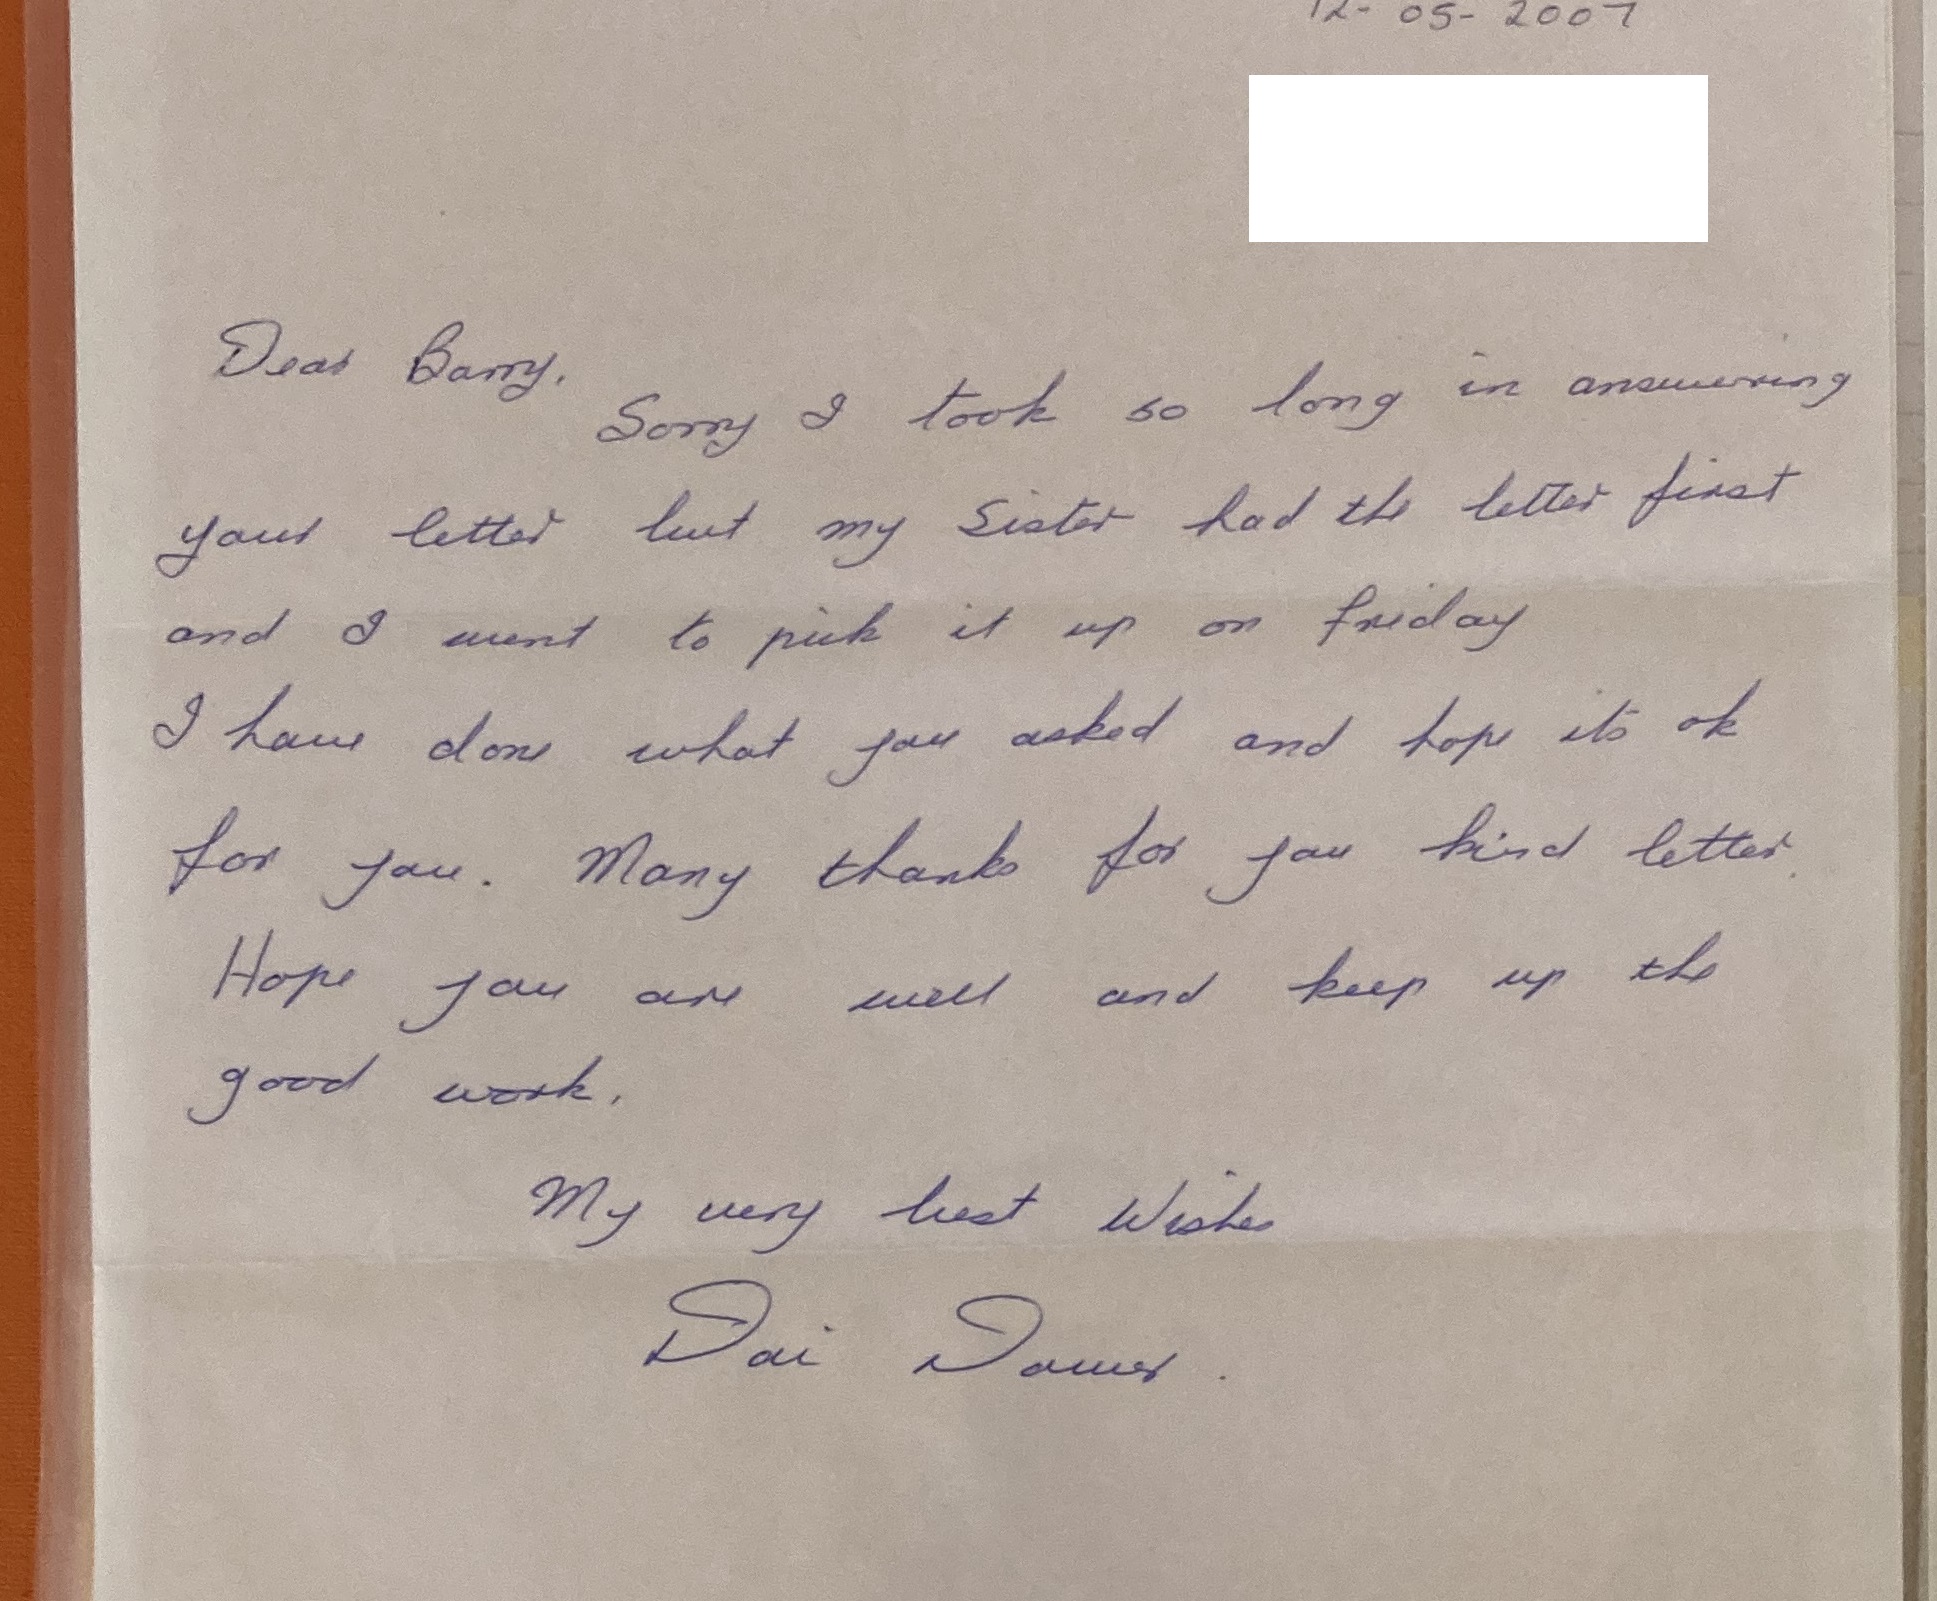 12-05-2007
Dear Barry,
Sorry I took so long in answering
your letter but my Sister had the letter first
and I went to pick it up on friday
I have done what you asked and hope its ok
for you. Many thanks for you kind letter.
Hope you are well and keep up the
good work.
My very best Wishes
Dai Dower.